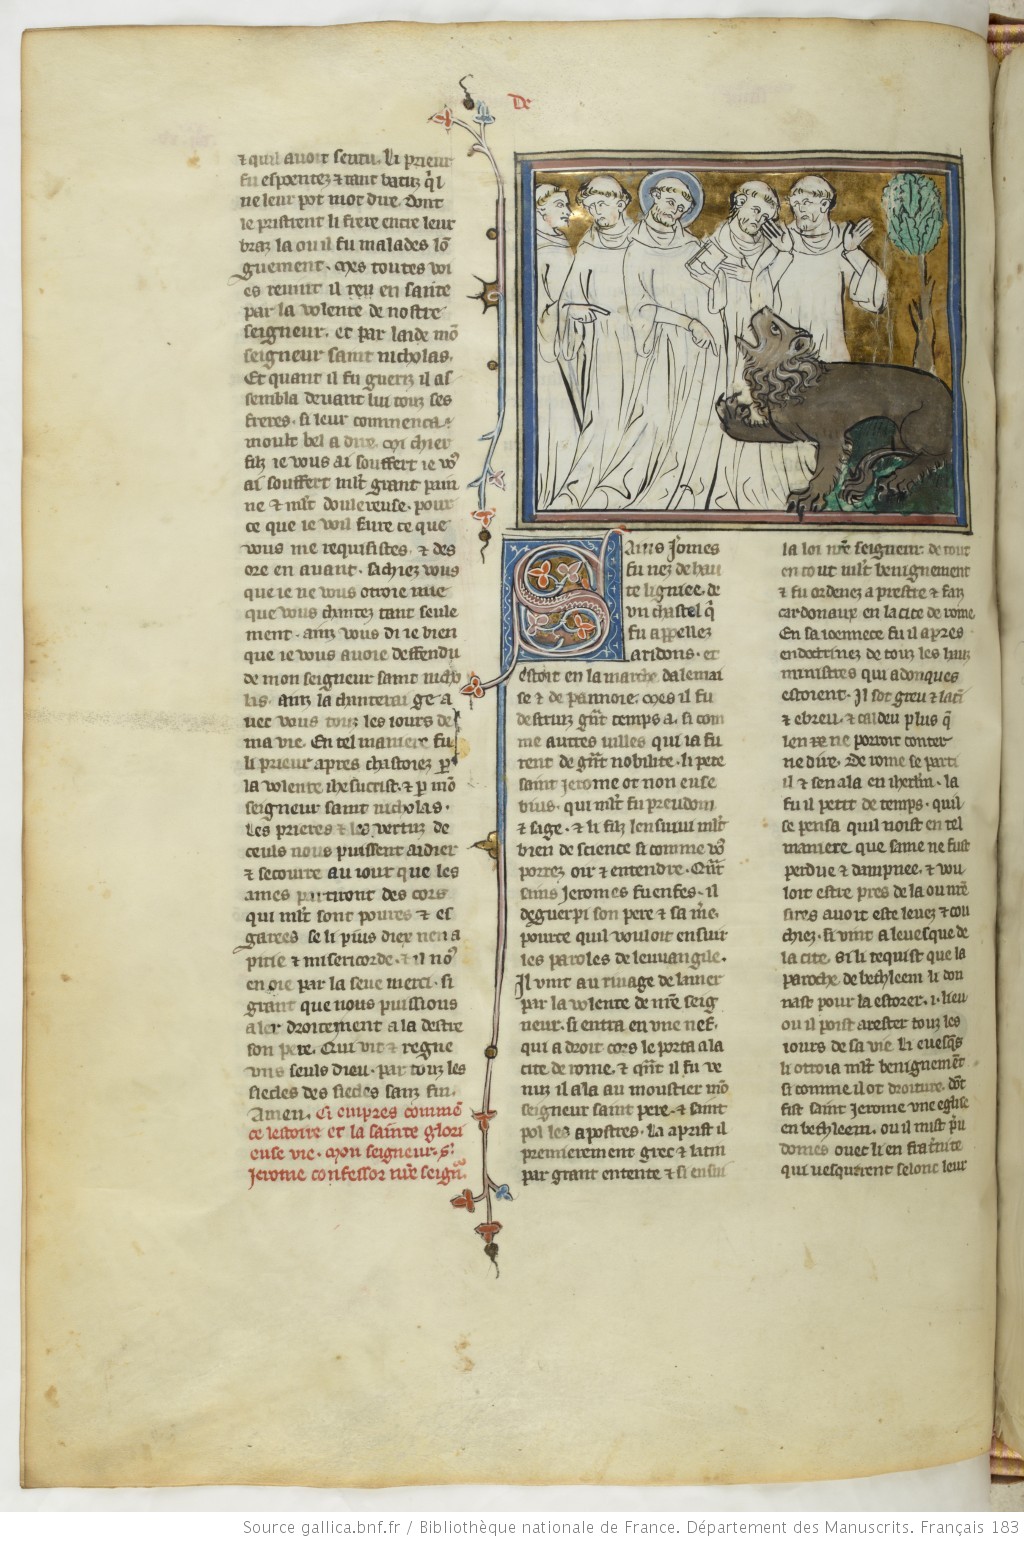 De
⁊ quil auoit sentu. Li prieur
fu espoentez ⁊ tant batuz q̃l
ne leur pot mot dire. dont
le pristrent li frere entre leur
braz la ou il fu malades lõ
guement. Mes toutes uoi
es reuint il ⁊ reu en sante
par la uolente de nostre
seigneur. et par laide mõ
seigneur saint nicholas.
Et quant il fu gueriz il as
sembla deuant lui touz ses
freres. si leur commenca
moult bel a dire. Mi chier
filz ie uous ai souffert ie uõ
ai souffert mlt grant pain
ne ⁊ mlt douleureuse. pour
ce que ie uoil faire ce que
uous me requisistes. ⁊ des
ore en auant. sachiez uous
que ie ne uous otroie mie
que uous chantez tant seule
ment. ainz uous di ie bien
que ie uous auoie deffendu
de mon seigneur saint nicho
las. ainz la chanterai ge a
uec uous touz les iours de
ma uie. En tel maniere fu
li prieur apres chastoiez p̲
la uolente ihesucrist. ⁊ p̲ mõ
seigneur saint nicholas.
Les prieres ⁊ les uertuz de
ceuls nous puissent aidier
⁊ secourre au iour que les
ames partiront des cors
qui mlt sont poures ⁊ es
garees se li pius dieu nen a
pitie ⁊ misericorde. ⁊ il noꝰ
en oie par la seue merci. si
grant que nous puissions
aler droitement a la destre
son pere. Qui uit ⁊ regne
uns seuls dieu. par touz les
siecles des siecles sanz fin.
Amen. Ci empres commẽ
ce lestoire et la sainte glori
euse uie. Mon seigneur. S.
Jerome confessor nr̃e seignr̃.
Sains Jeromes
fu nez de hau
te ligniee. de
un chastel q̃
fu appellez
aridons. et
estoit en la marche dalemai
se ⁊ de pannoie. Mes il fu
destruiz gñt temps a. si com
me autres uilles qui ia fu
rent de gñt nobilite. li pere
saint Jerome ot non euse
bius. qui mlt fu preudom
⁊ sage. ⁊ li filz lensuiui mlt
bien de science si comme uõ
porrez oir ⁊ entendre. Qñt
sains Jeromes fu enfes. il
deguerpi son pere ⁊ sa m̃e.
pource quil uouloit ensuir
les paroles de leuuangile.
Il uint au riuage de la mer
par la uolente de nr̃e seig
neur. si entra en une nef.
qui a droit cors le porta a la
cite de rome. ⁊ qñt il fu ue
nuz il ala au moustier mõ
seigneur saint pere. ⁊ saint
pol les apostres. La aprist il
premierement grec ⁊ latin
par grant entente ⁊ si ensui
la loi nr̃e seigneur de tout
en tout mlt benignement
⁊ fu ordenez a prestre ⁊ faiz
cardonaux en la cite de rome.
En sa ioennece fu il apres
endoctrinez de touz les huiz
ministres qui adonques
estoient. Il sot greu ⁊ latĩ
⁊ ebreu. ⁊ caldeu plus q̃
len ne porroit conter
ne dire. De rome se parti
il ⁊ sen ala en iherlm̃. la
fu il petit de temps. quil
se pensa quil uoist en tel
maniere que same ne fust
perdue ⁊ dampnee. ⁊ uou
loit estre pres de la ou nr̃e
sires auoit este leuez ⁊ cou
chiez. si uint a leuesque de
la cite. si li requist que la
paroche de bethleem li don
nast pour la estorer. i. lieu
ou il poist arester touz les
iours de sa uie. Li euesq̃s
li otroia mlt benignemẽt
si comme il ot droiture. dõt
fist saint Jerome une eglise
en bethleem. ou il mist p̃u
domes ouec li en frat̃nite
qui uesquirent selonc leur
Source gallica.bnf.fr / Bibliothèque nationale de France. Département des Manuscrits. Français 183